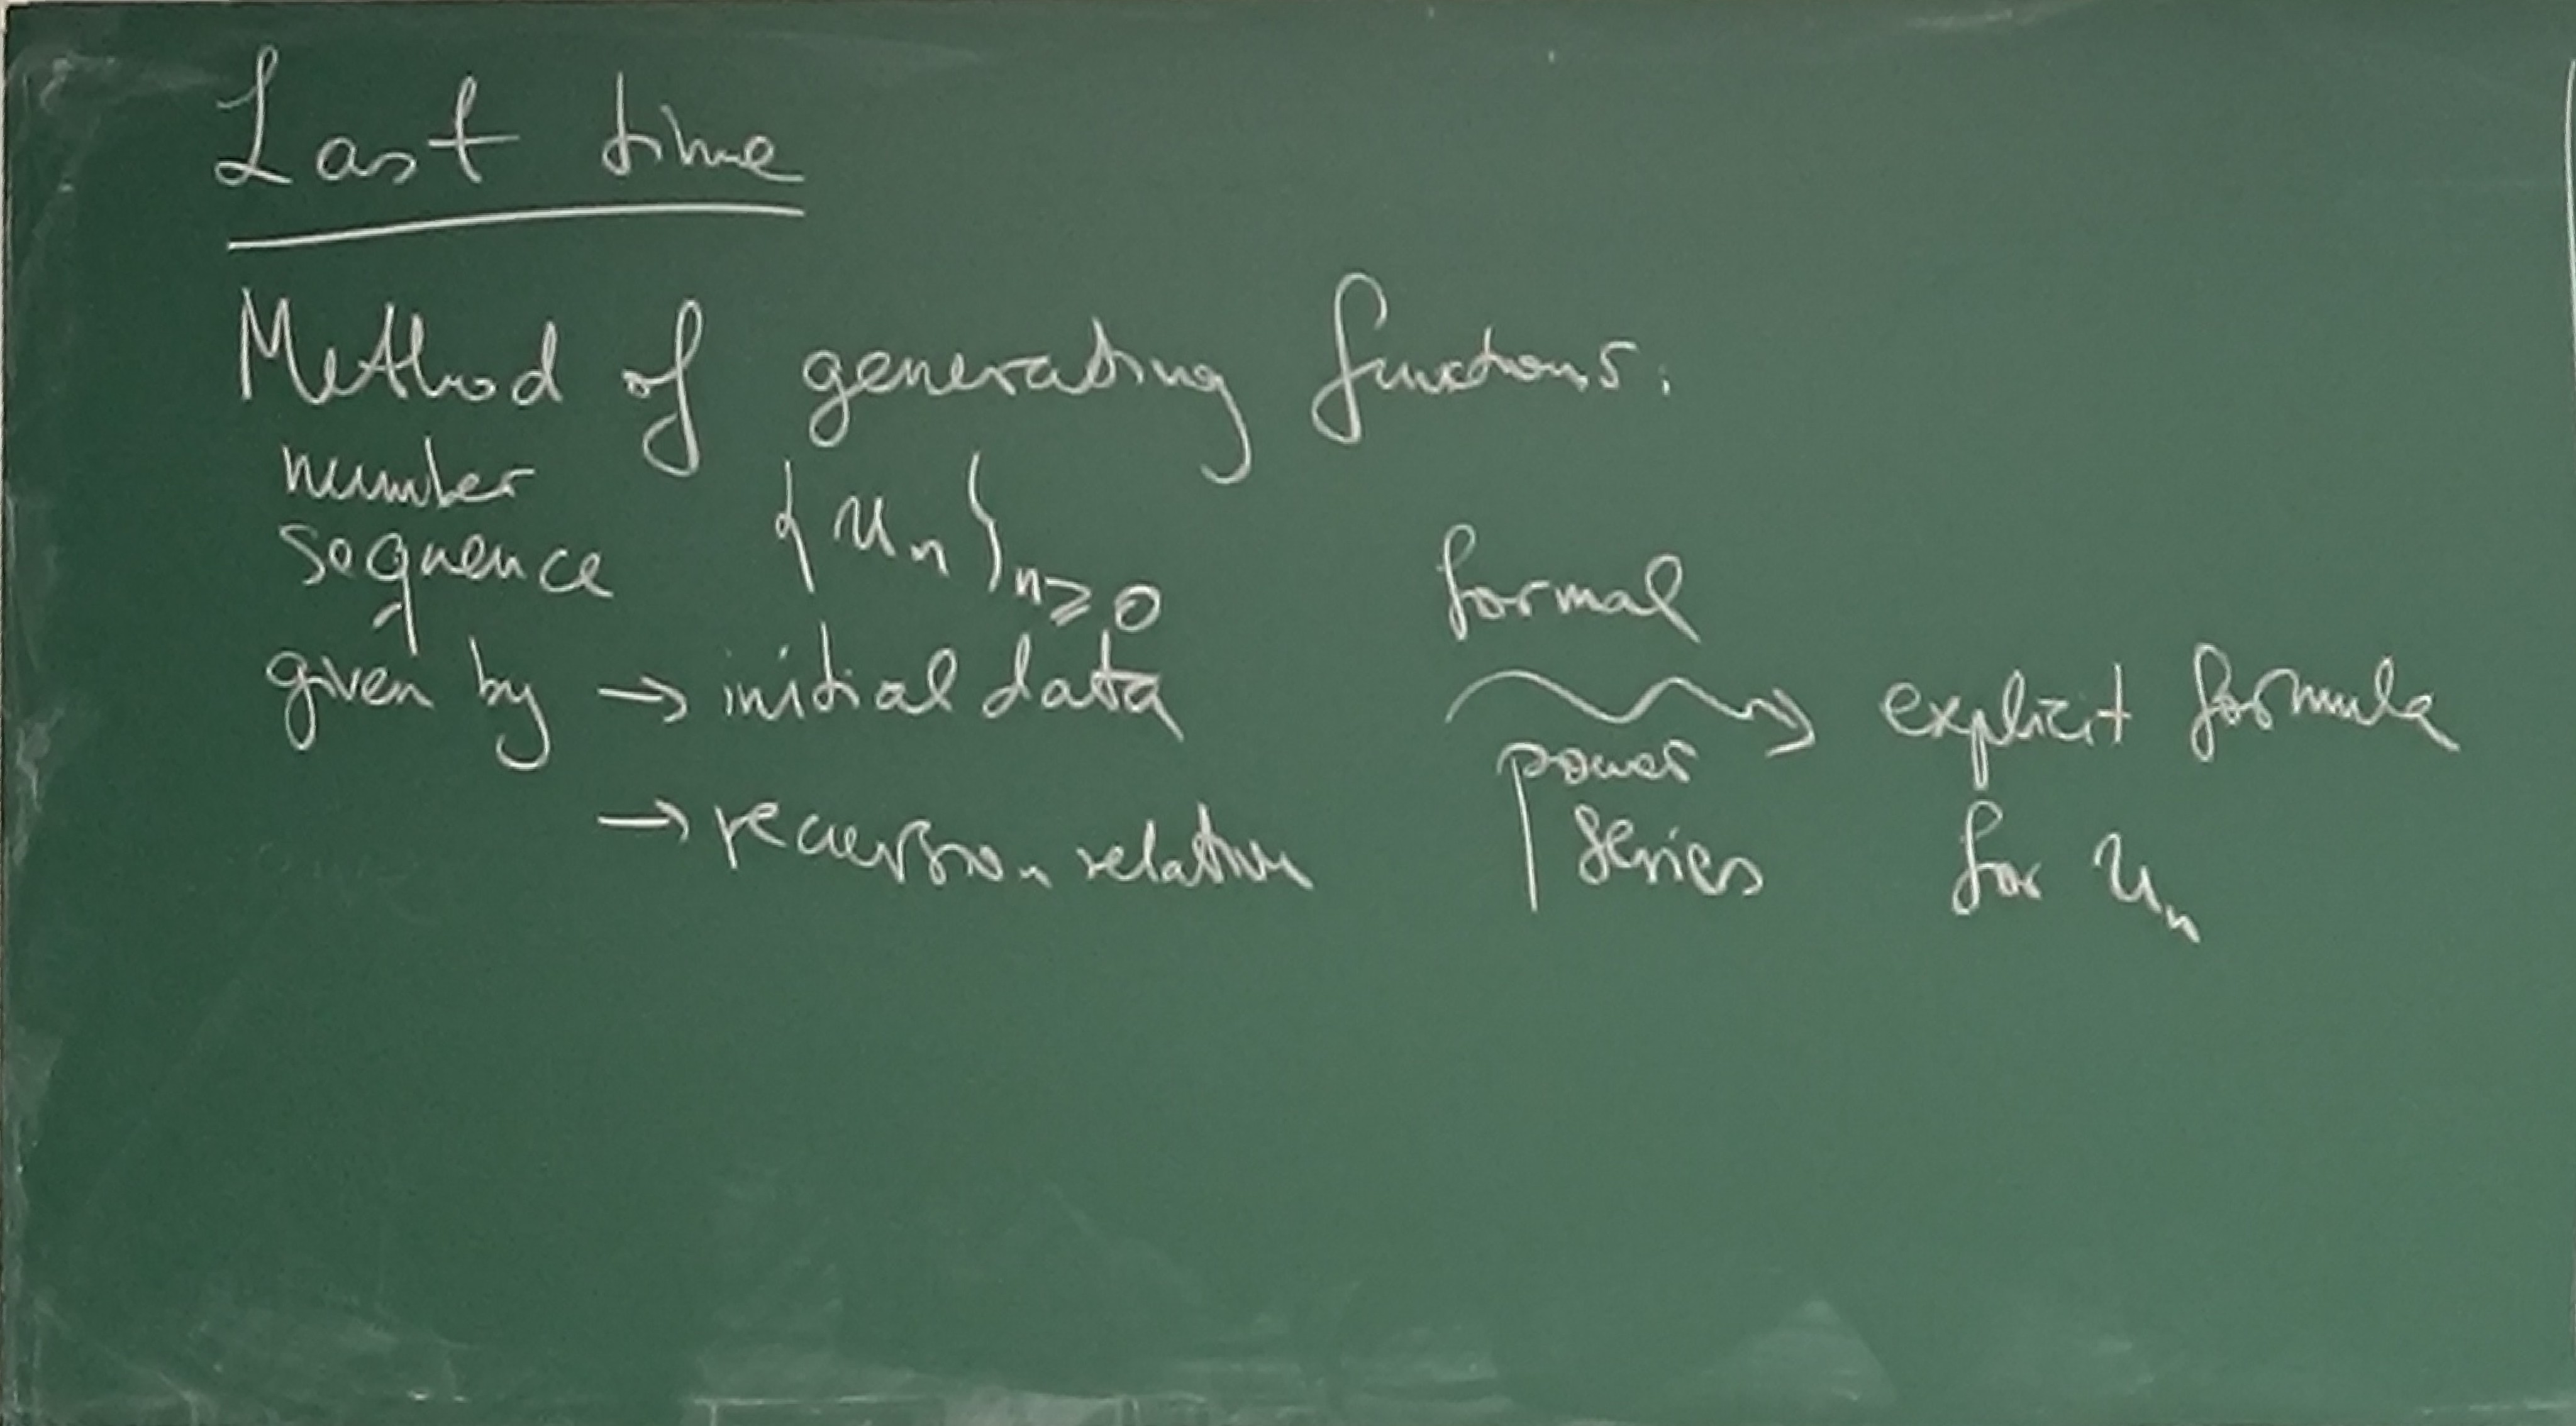 Last time
Method of generating functions.
number
sequence {u_n}_{n≥0}
given by → initial data
→ recursion relation
formal
power
series
explicit formula
for u_n